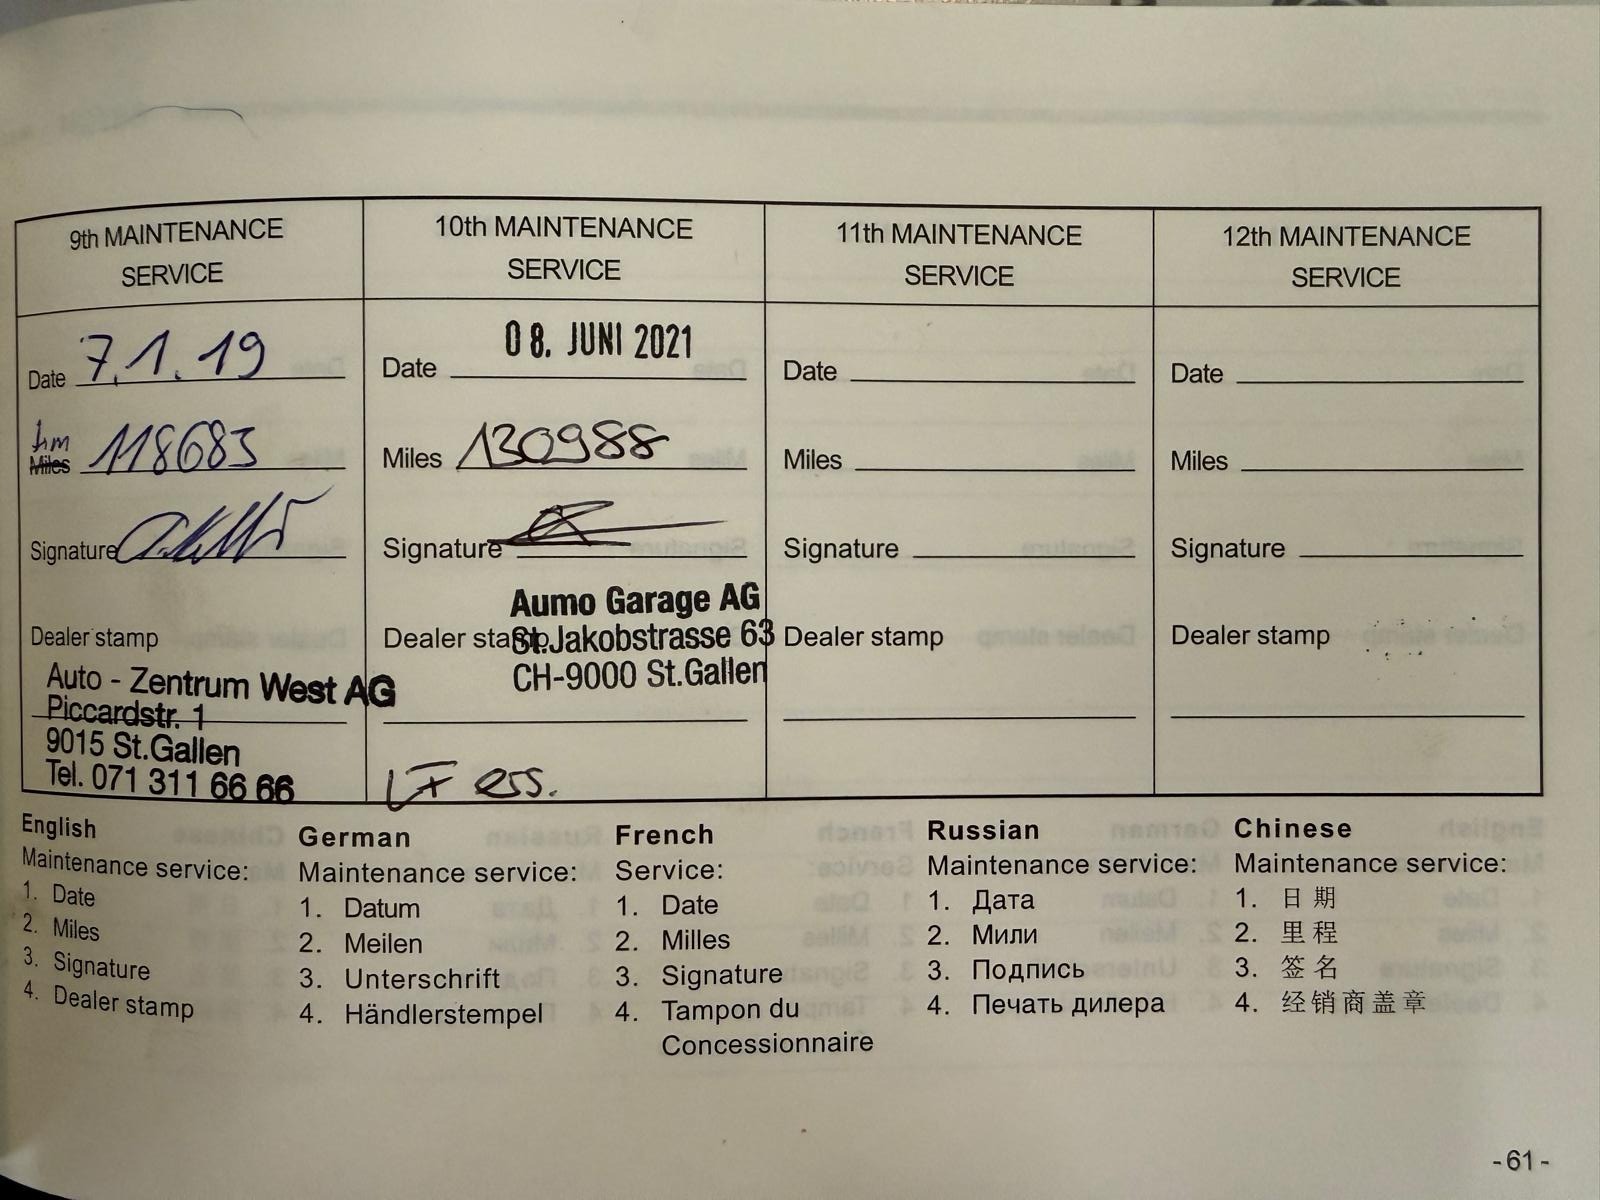 9th MAINTENANCE
SERVICE
Date 7.1.19
km
Miles 118683
Signature
Dealer stamp
Auto - Zentrum West AG
Piccardstr. 1
9015 St.Gallen
Tel. 071 311 66 66
10th MAINTENANCE
SERVICE
08. JUNI 2021
Date
Miles 130988
Signature
Aumo Garage AG
Dealer stamp
St.Jakobstrasse 63
CH-9000 St.Gallen
ers.
11th MAINTENANCE
SERVICE
Date
Miles
Signature
Dealer stamp
12th MAINTENANCE
SERVICE
Date
Miles
Signature
Dealer stamp
English
Maintenance service:
1. Date
2. Miles
3. Signature
4. Dealer stamp
German
Maintenance service:
1. Datum
2. Meilen
3. Unterschrift
4. Händlerstempel
French
Service:
1. Date
2. Milles
3. Signature
4. Tampon du
Concessionnaire
Russian
Maintenance service:
1. Дата
2. Мили
3. Подпись
4. Печать дилера
Chinese
Maintenance service:
1. 日期
2. 里程
3. 签名
4. 经销商盖章
- 61 -